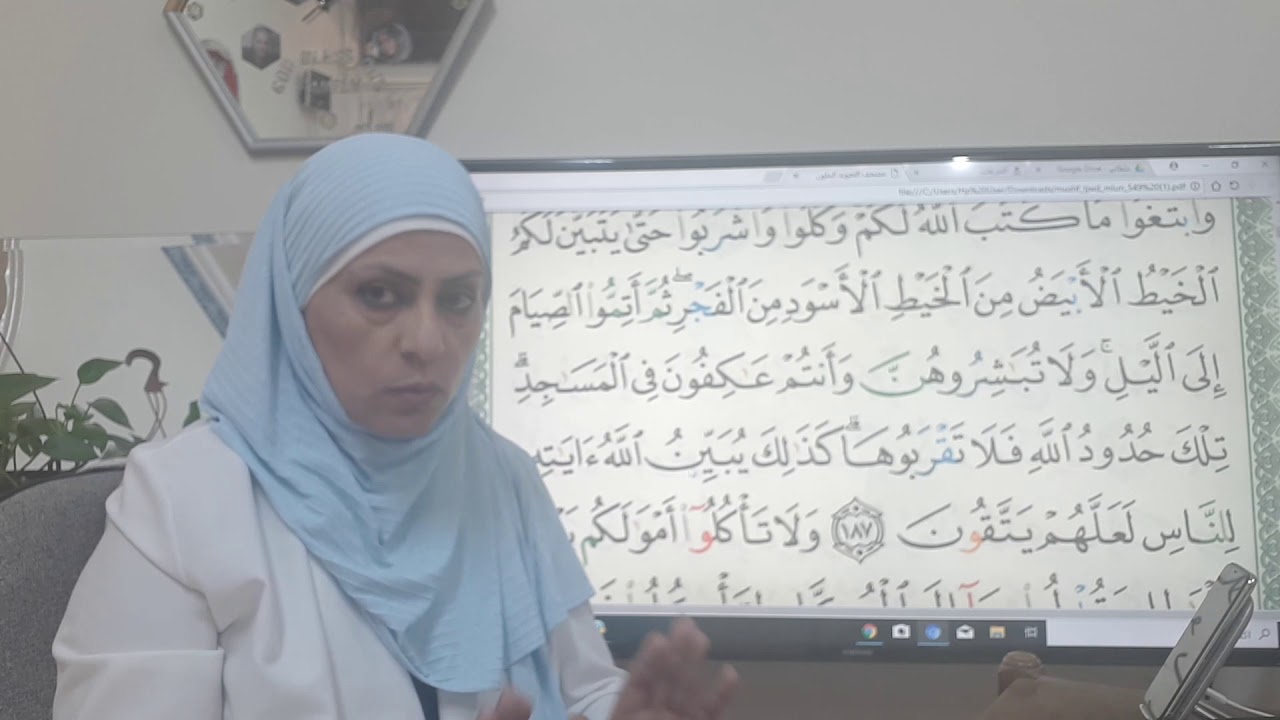 GOD BLESS
Google Drive
مصحف التجويد الملون
وَابْتَغُوا مَا كَتَبَ اللَّهُ لَكُمْ وَكُلُوا وَاشْرَبُوا حَتَّىٰ يَتَبَيَّنَ لَكُمُ
ٱلْخَيْطُ ٱلْأَبْيَضُ مِنَ ٱلْخَيْطِ ٱلْأَسْوَدِ مِنَ ٱلْفَجْرِ ۖ ثُمَّ أَتِمُّوا۟ ٱلصِّيَامَ
إِلَى ٱلَّيْلِ ۚ وَلَا تُبَـٰشِرُوهُنَّ وَأَنتُمْ عَـٰكِفُونَ فِى ٱلْمَسَـٰجِدِ ۗ
تِلْكَ حُدُودُ ٱللَّهِ فَلَا تَقْرَبُوهَا ۗ كَذَٰلِكَ يُبَيِّنُ ٱللَّهُ ءَايَـٰتِهِ
لِلنَّاسِ لَعَلَّهُمْ يَتَّقُونَ ١٨٧ وَلَا تَأْكُلُوٓا۟ أَمْوَٰلَكُم